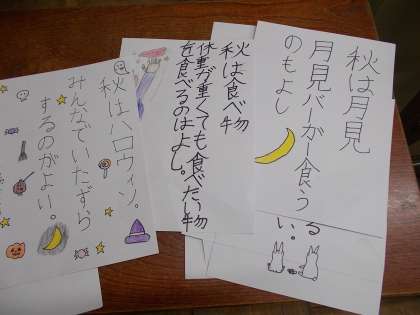 秋は月見
月見バーガー食う
のもよし
秋は食べ物
体重が重くても食べたい物
を食べるのはよし。
秋はハロウィン。
みんなでいたずら
するのがよい。
る
い。